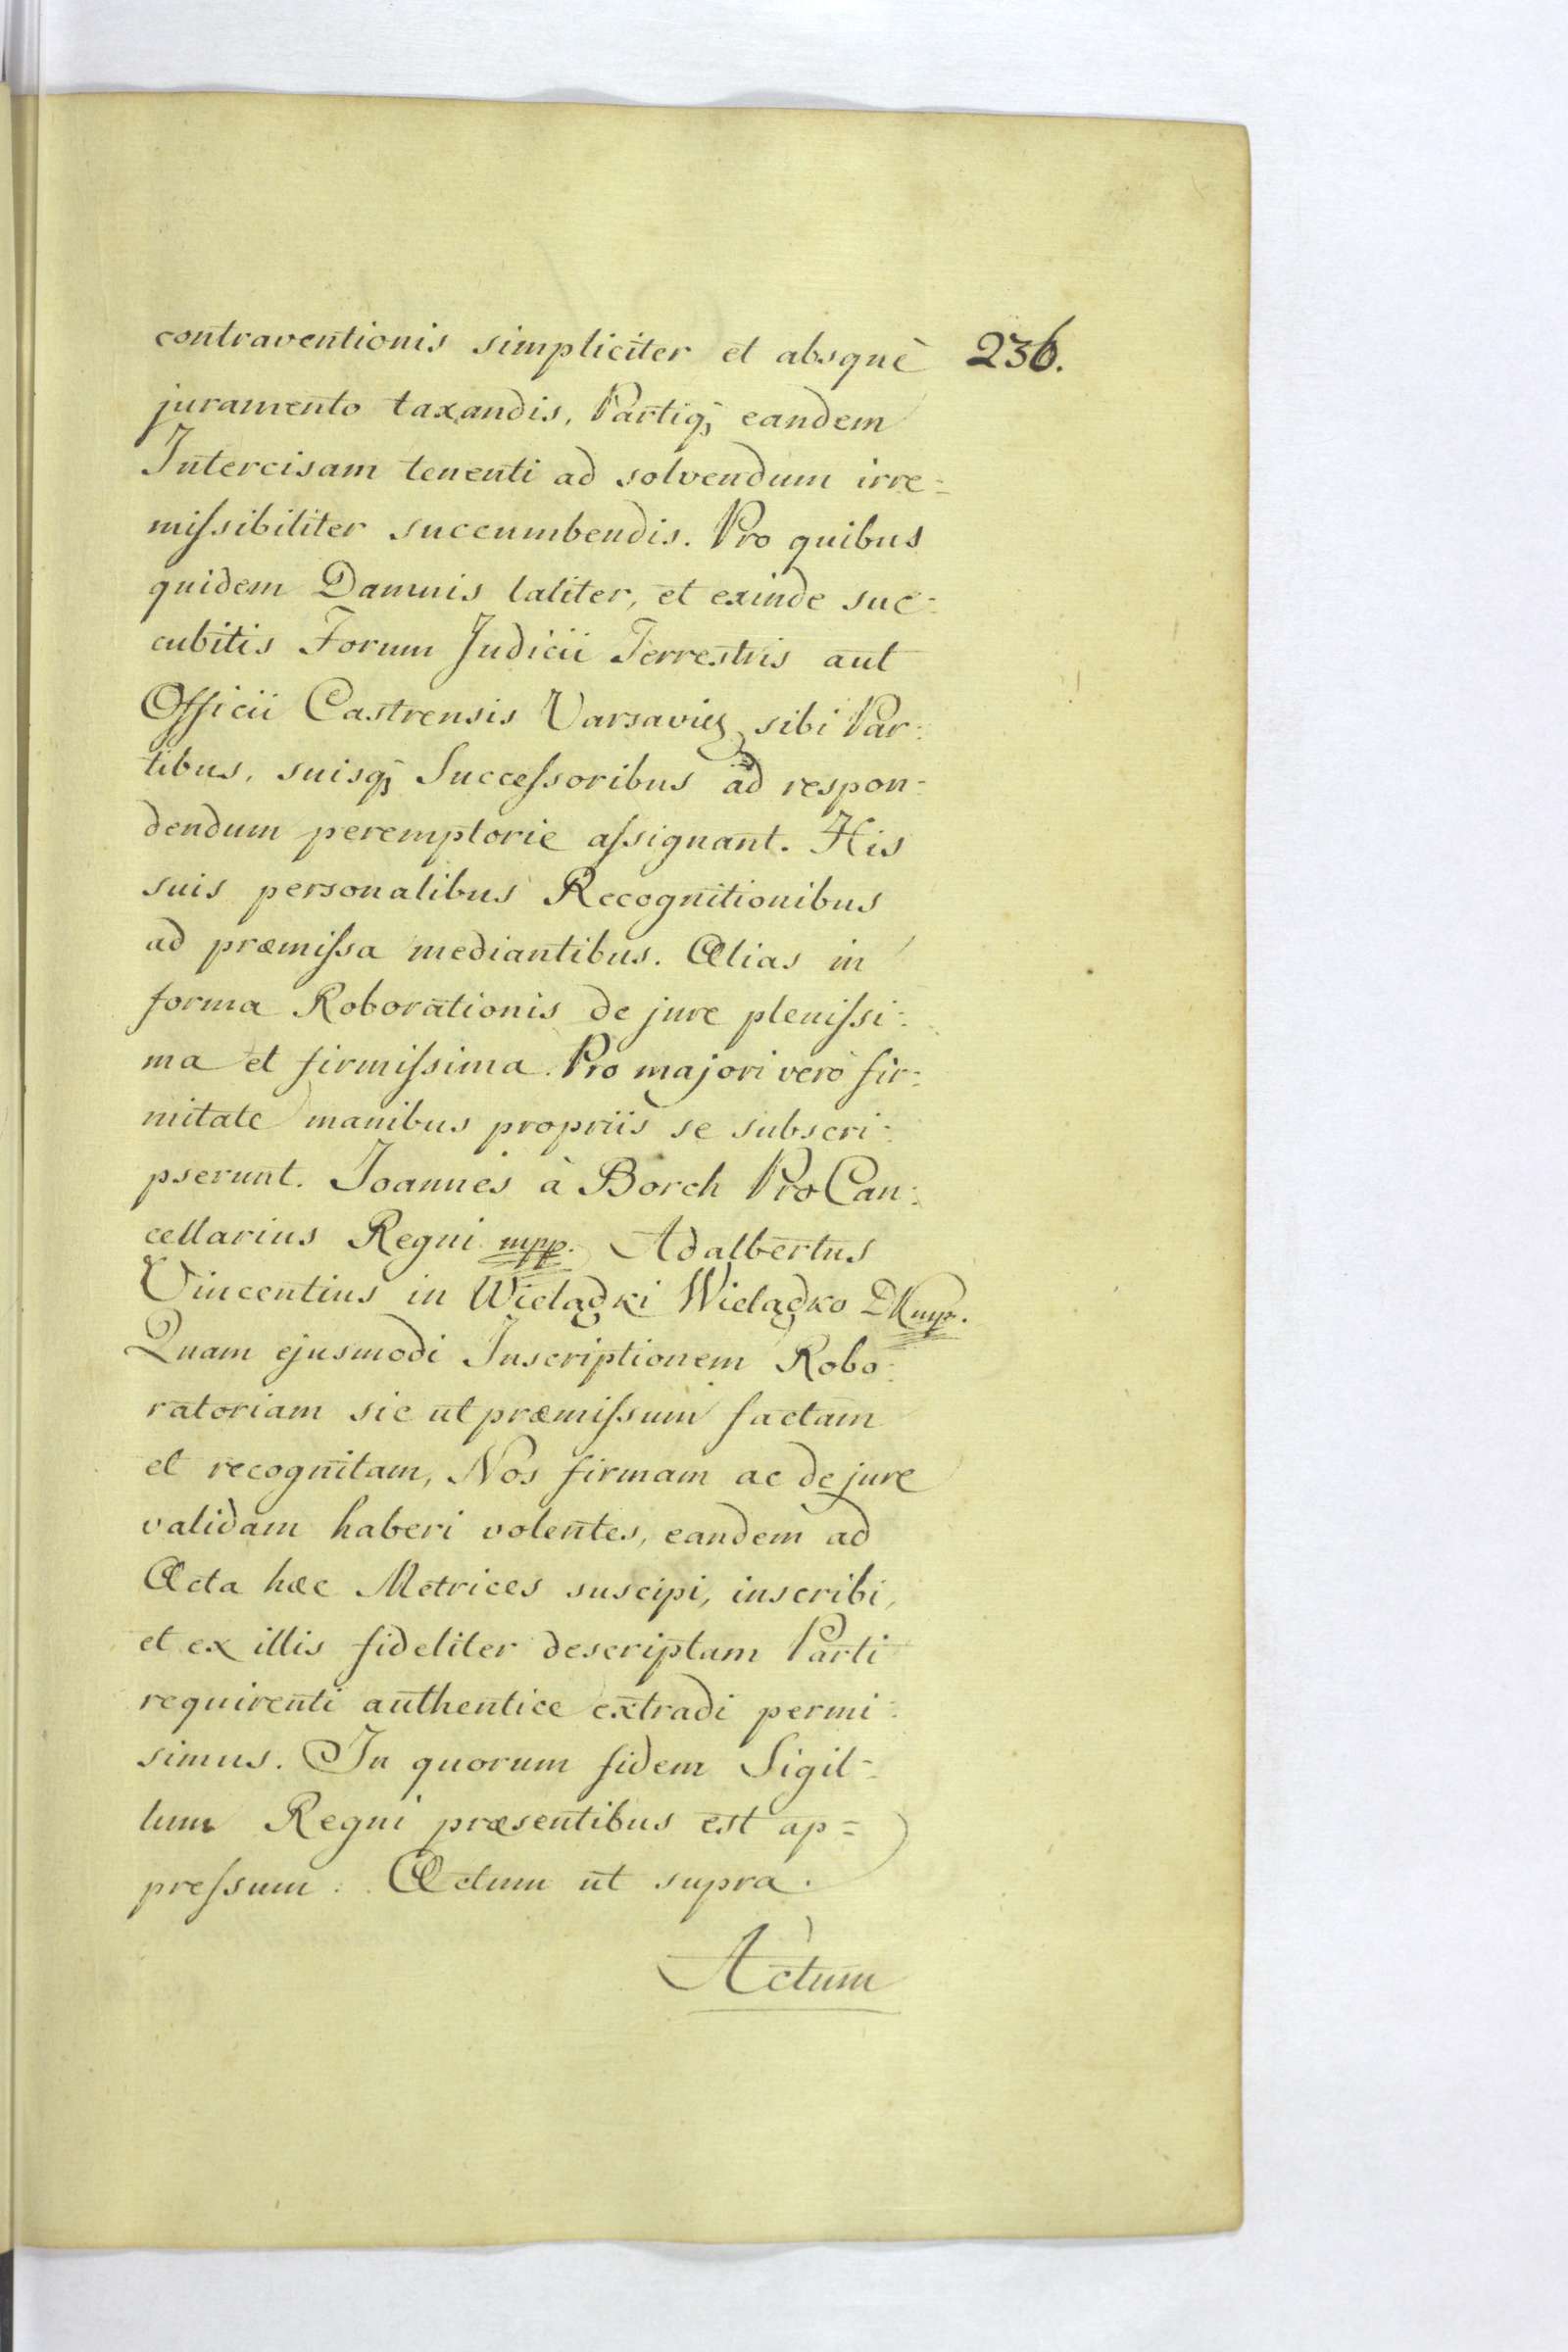 contraventionis simpliciter et absquè 236.
juramento taxandis, Partiq; eandem
Intercisam tenenti ad solvendum irre=
miſsibiliter succumbendis. Pro quibus
quidem Damnis taliter, et exinde suc=
cubitis Forum Judicii Terrestris aut
Officii Castrensis Varsavię sibi Par=
tibus, suisq; Succeſsoribus ad respon=
dendum peremptorie aſsignant. His
suis personalibus Recognitionibus
ad præmiſsa mediantibus. Alias in
forma Roborationis de jure pleniſsi=
ma et firmiſsima. Pro majori verò fir=
mitate manibus propriis se subscri=
pserunt. Joannes à Borch ProCan=
cellarius Regni mpp. Adalbertus
Vincentius in Wielądki Wielądko DK mpp.
Quam ejusmodi Inscriptionem Robo=
ratoriam sic ut præmiſsum factam
et recognitam, Nos firmam ac de jure
validam haberi volentes, eandem ad
Acta hæc Metrices suscipi, inscribi,
et ex illis fideliter descriptam Parti
requirenti authentice extradi permi=
simus. In quorum fidem Sigil=
lum Regni præsentibus est ap=
preſsum. Actum ut supra.
Actum